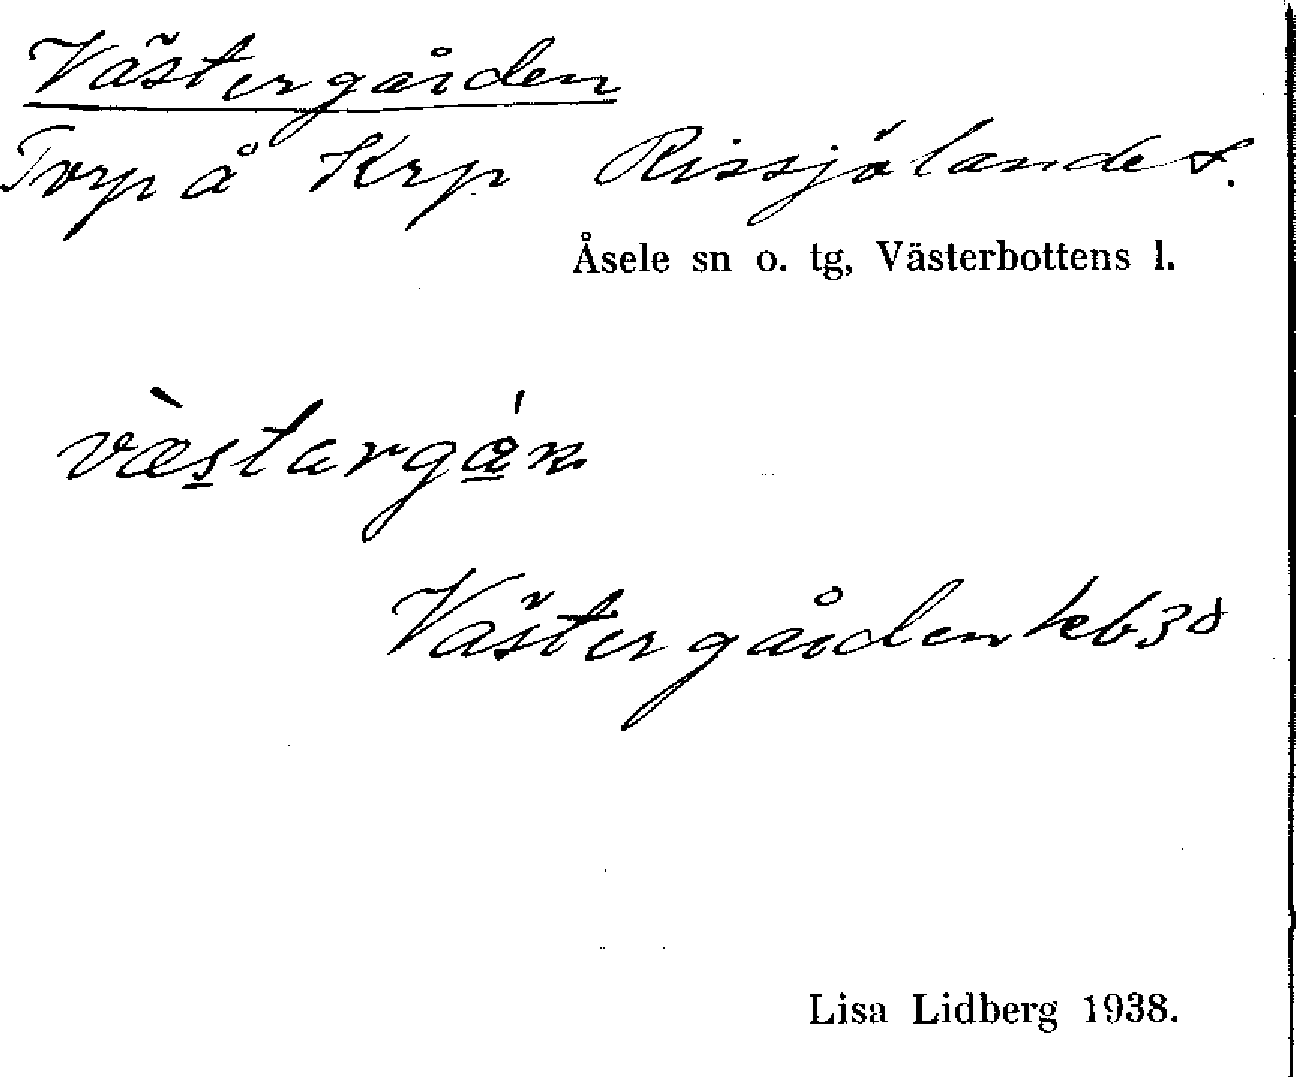 Västergården
Torp å Krp Rissjölandet.
Åsele sn o. tg, Västerbottens l.
Västergården kb 38
Lisa Lidberg 1938.